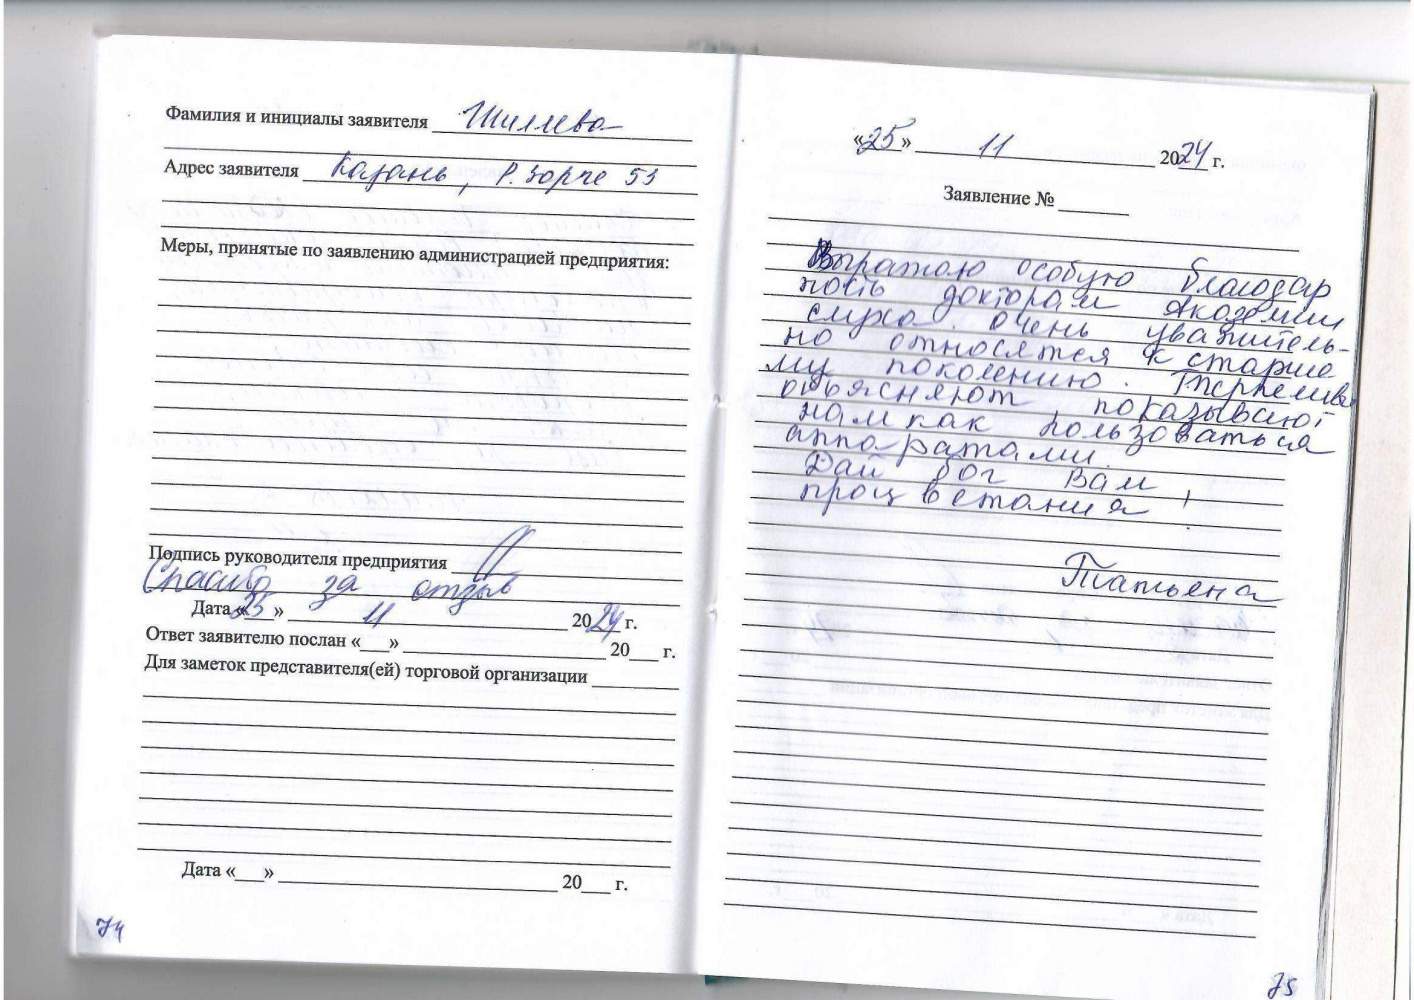 Фамилия и инициалы заявителя Шиляева
Адрес заявителя Казань, Р. Зорге 53
Меры, принятые по заявлению администрацией предприятия:
Подпись руководителя предприятия
Спасибо за отзыв
Дата «25» 11 2024 г.
Ответ заявителю послан «___» 20___ г.
Для заметок представителя(ей) торговой организации
Дата «___» 20___ г.
74
«25» 11 2024 г.
Заявление №
Выражаю особую благодар
ность докторам Академии
слуха. Очень уважитель-
но относятся к старше
му поколению. Терпеливо
объясняют, показывают
нам как пользоваться
аппаратами.
Дай бог Вам
процветания!
Татьяна
75